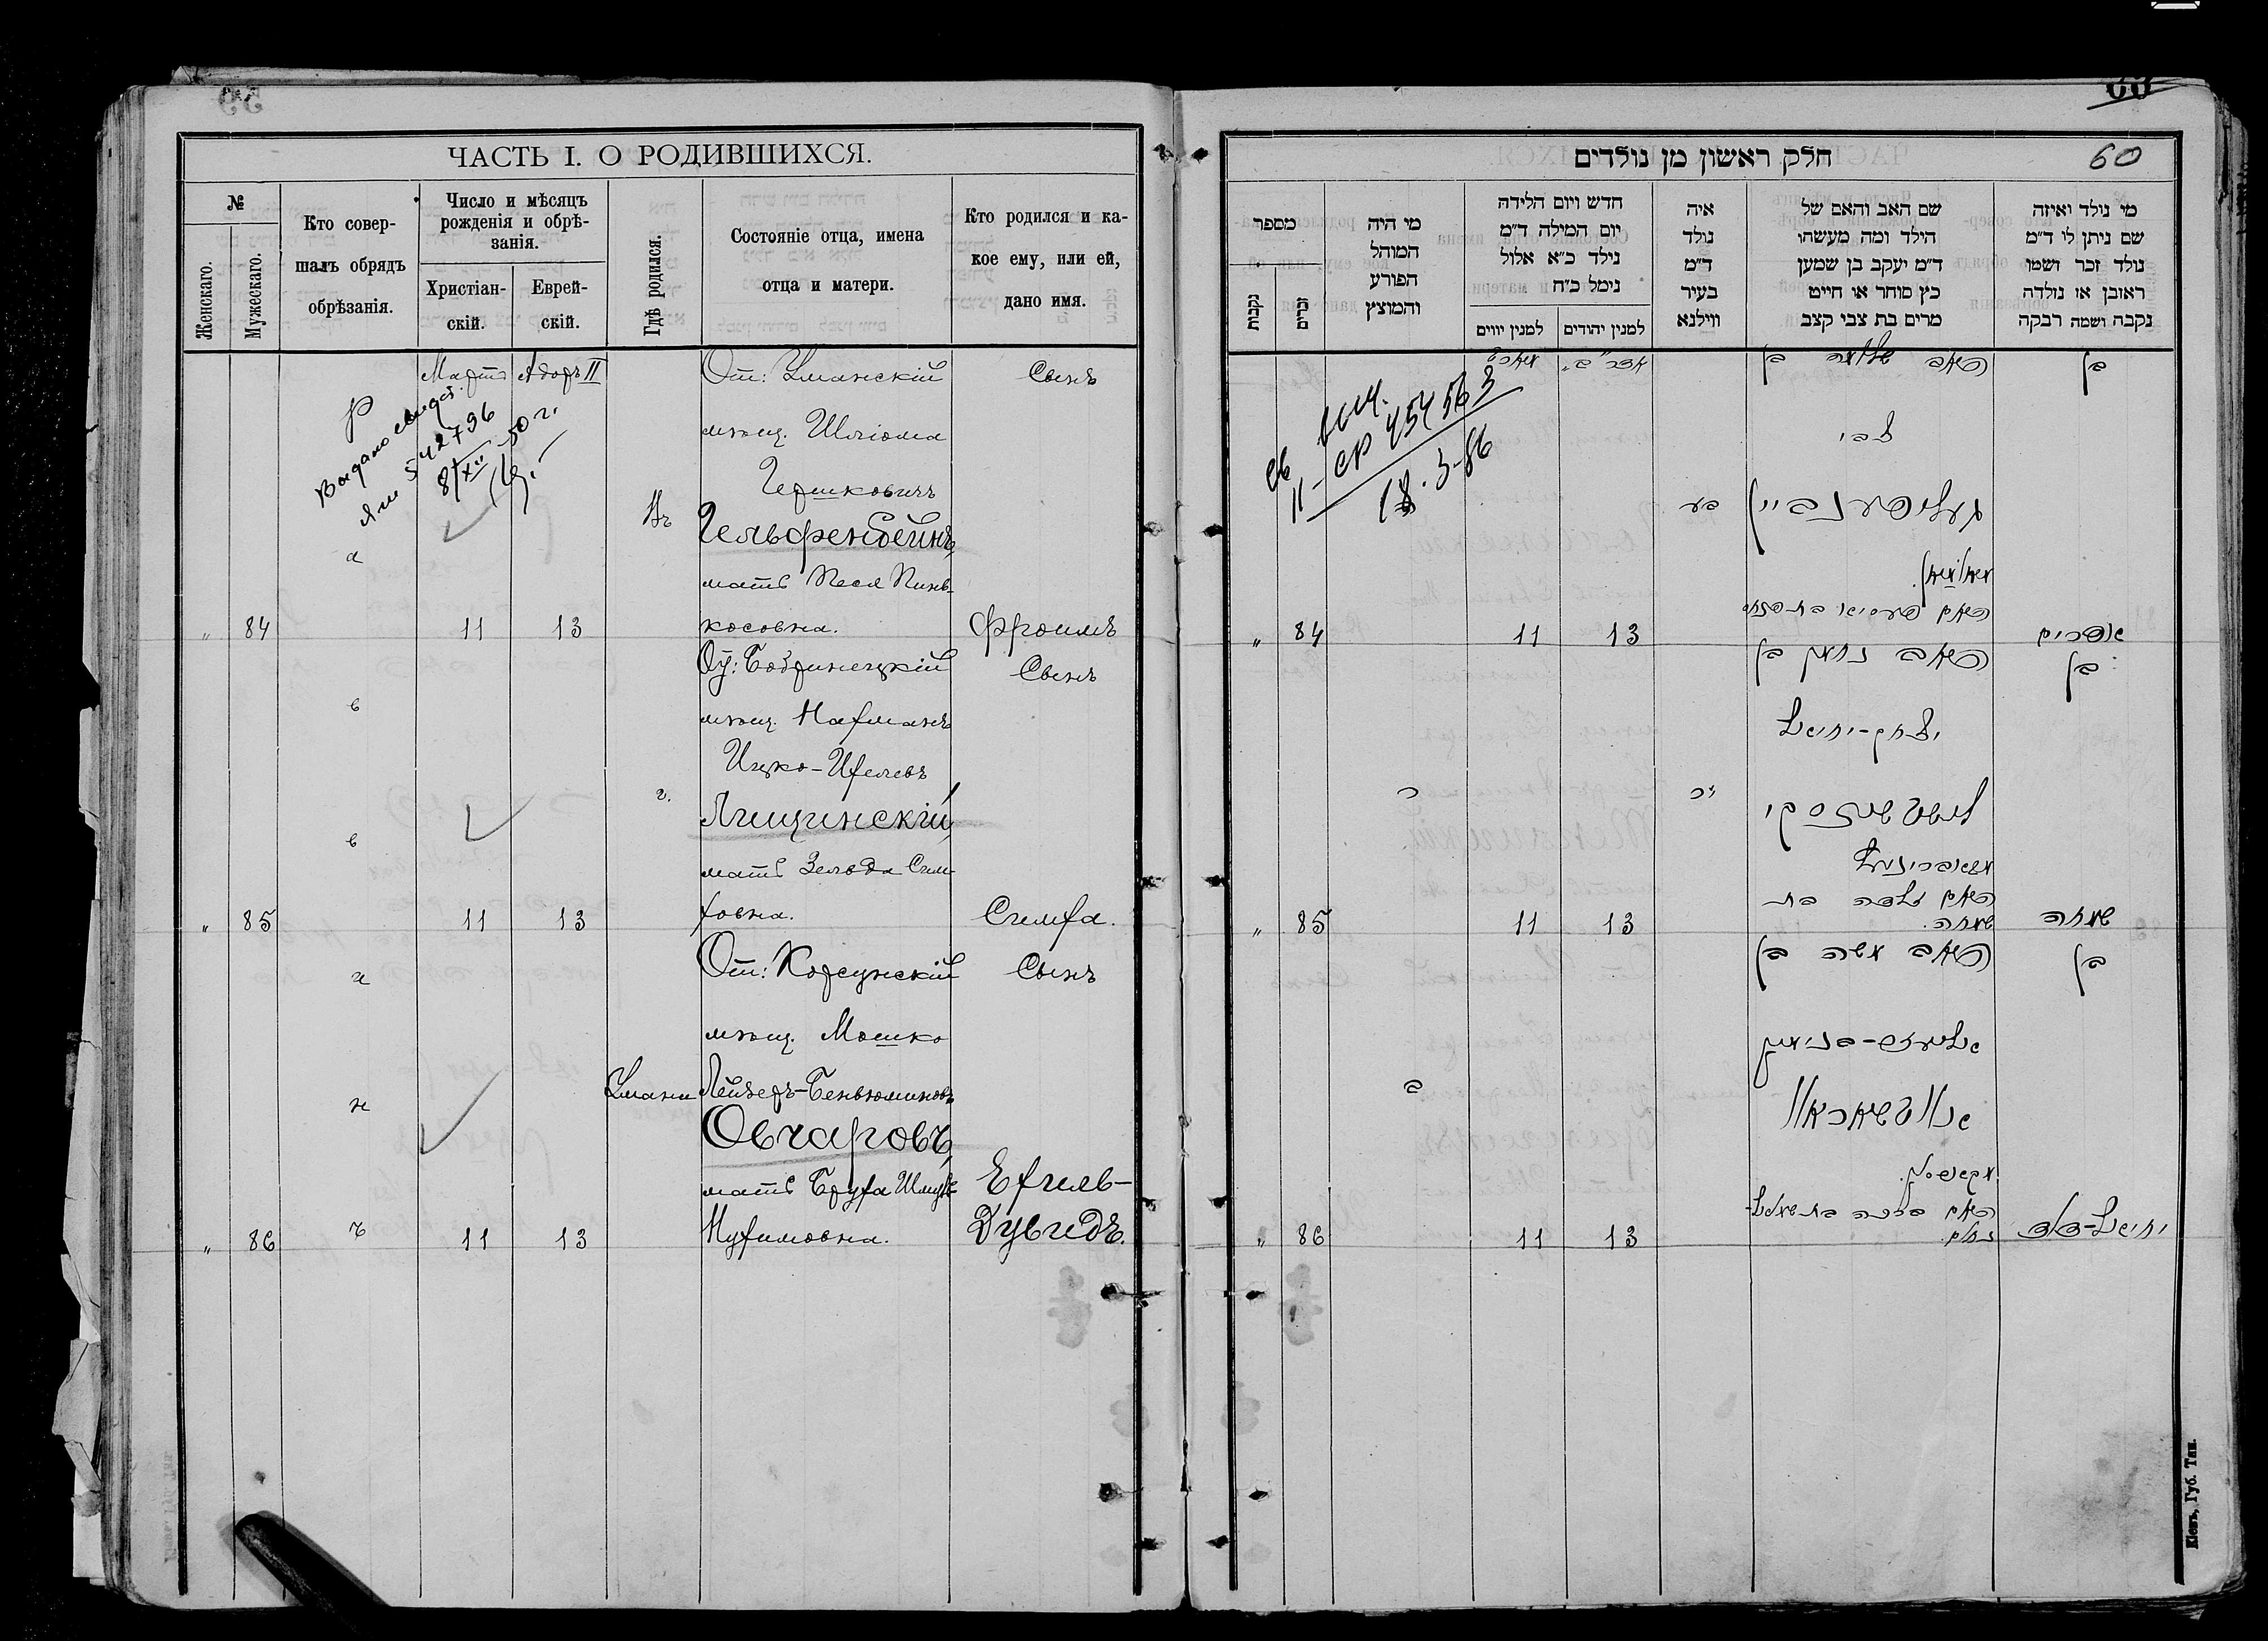 60
ЧАСТЬ I. О РОДИВШИХСЯ.
№
Женскаго.
Мужескаго.
Кто совер-
шалъ обрядъ
обрѣзанія.
Число и мѣсяцъ
рожденія и обрѣ-
занія.
Христіан-
скій.
Еврей-
скій.
Гдѣ родился.
Состояніе отца, имена
отца и матери.
Кто родился и ка-
кое ему, или ей,
дано имя.
Мартъ
Адаръ II
Выдано свидет.
8/XII 50 г.
Въ
От: Уманскій
мѣщ. Шліома
Гершковичъ
Гельфенбейнъ,
мать Песя Пинь-
косовна.
Сынъ
Фроимъ
„ 84 11 13
г.
От: Бобринецкій
мѣщ. Нахманъ
Ицко-Ихелевъ
Лищинскій,
мать Зельда Сим-
ховна.
Сынъ
Симха.
„ 85 11 13
Умани
От: Корсунскій
мѣщ. Мошко
Лейзеръ-Беньюминовъ
Овчаровъ,
мать Бруха Шмуль-
Нухимовна.
Сынъ
Ехиль-
Дувидъ.
„ 86 11 13
חלק ראשון מן נולדים
60
מספר
נקבות
זכרים
מי היה
המוהל
הפורע
והמוצץ
חדש ויום הלידה
יום המילה ד״מ
נילד כ״א אלול
נימל כ״ח
למנין יווים
למנין יהודים
איה
נולד
ד״מ
בעיר
ווילנא
שם האב והאם של
הילד ומה מעשהו
ד״מ יעקב בן שמען
כץ סוחר או חייט
מרים בת צבי קצב
מי נולד ואיזה
שם ניתן לו ד״מ
נולד זכר ושמו
ראובן או נולדה
נקבה ושמה רבקה
454563
18.3-86
האב שלמה בן
צבי
געלפענביין
בן
אפרים
„ 84 11 13
האב נחמן בן
יצחק-יחיאל
האם זלדה בת
שמחה.
בן
שמחה
„ 85 11 13
האב משה בן
אליעזר-בנימין
האם ברכה בת שמואל-
נחום.
בן
יחיאל-דוד
„ 86 11 13
Кіевъ, Губ. Тип.